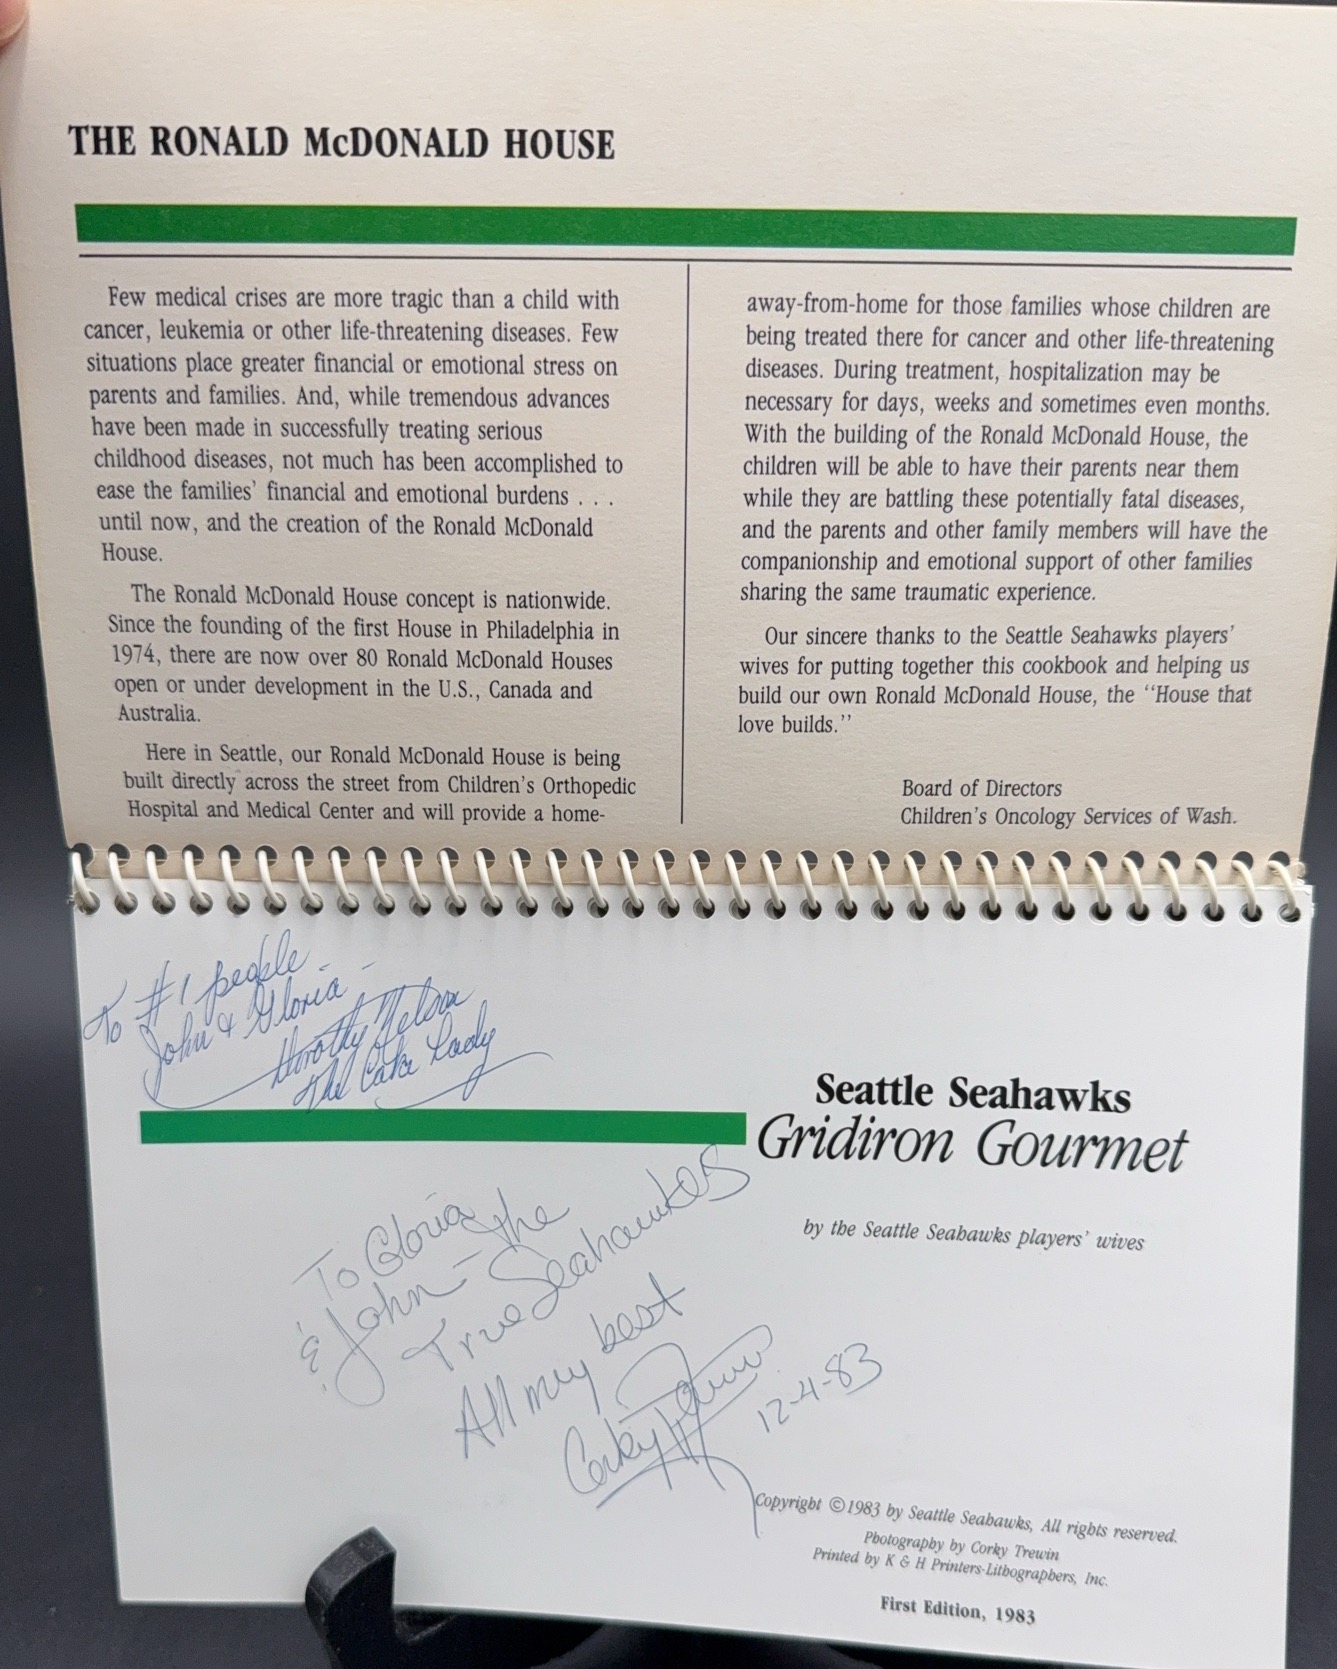 THE RONALD McDONALD HOUSE
Few medical crises are more tragic than a child with
cancer, leukemia or other life-threatening diseases. Few
situations place greater financial or emotional stress on
parents and families. And, while tremendous advances
have been made in successfully treating serious
childhood diseases, not much has been accomplished to
ease the families' financial and emotional burdens . . .
until now, and the creation of the Ronald McDonald
House.
The Ronald McDonald House concept is nationwide.
Since the founding of the first House in Philadelphia in
1974, there are now over 80 Ronald McDonald Houses
open or under development in the U.S., Canada and
Australia.
Here in Seattle, our Ronald McDonald House is being
built directly across the street from Children's Orthopedic
Hospital and Medical Center and will provide a home-
away-from-home for those families whose children are
being treated there for cancer and other life-threatening
diseases. During treatment, hospitalization may be
necessary for days, weeks and sometimes even months.
With the building of the Ronald McDonald House, the
children will be able to have their parents near them
while they are battling these potentially fatal diseases,
and the parents and other family members will have the
companionship and emotional support of other families
sharing the same traumatic experience.
Our sincere thanks to the Seattle Seahawks players'
wives for putting together this cookbook and helping us
build our own Ronald McDonald House, the "House that
love builds."
Board of Directors
Children's Oncology Services of Wash.
To #1 people -
John & Gloria -
Dorothy Nelson
The Cake Lady
Seattle Seahawks
Gridiron Gourmet
by the Seattle Seahawks players' wives
To Gloria
& John - the
True Seahawkes
All my best
Corky Trewin
12-4-83
Copyright ©1983 by Seattle Seahawks, All rights reserved.
Photography by Corky Trewin
Printed by K & H Printers-Lithographers, Inc.
First Edition, 1983